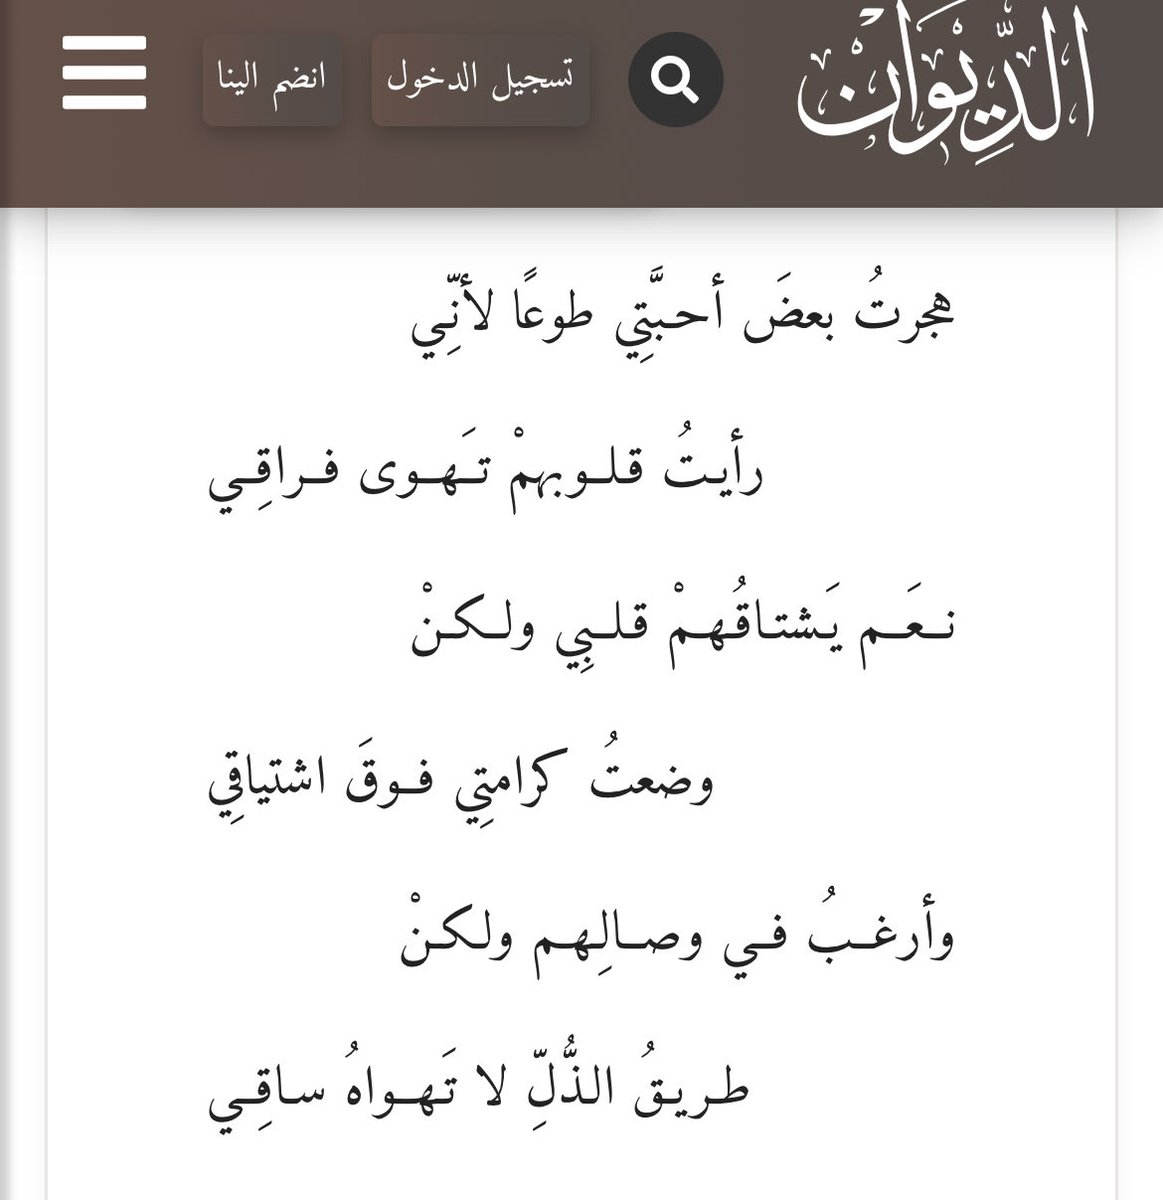 الدِّيْوَانْ
تسجيل الدخول
انضم الينا
هجرتُ بعضَ أحبَّتِي طوعًا لأنِّي
رأيتُ قلوبهمْ تَهوى فراقِي
نعَم يَشتاقُهمْ قلبِي ولكنْ
وضعتُ كرامتِي فوقَ اشتياقِي
وأرغبُ في وصالِهم ولكنْ
طريقُ الذُّلِّ لا تَهواهُ ساقِي